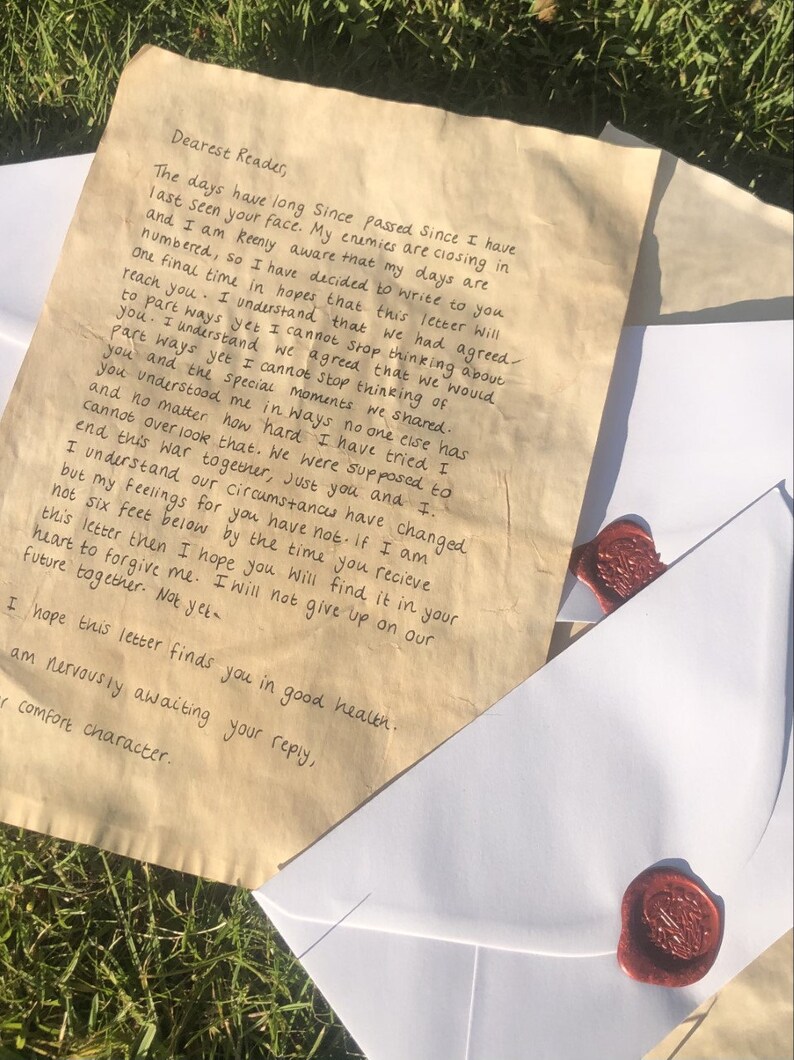 Dearest Reader,
The days have long Since passed Since I have
last seen your face. My enemies are closing in
and I am keenly aware that my days are
numbered, so I have decided to write to you
one final time in hopes that this letter will
reach you. I understand that we had agreed
to part ways yet I cannot stop thinking about
you. I understand we agreed that we would
part ways yet I cannot stop thinking of
you and the special moments we shared.
you understood me in ways no one else has
and no matter how hard I have tried I
cannot overlook that. We were supposed to
end this war together, just you and I.
I understand our circumstances have changed
but my feelings for you have not. If I am
not six feet below by the time you recieve
this letter then I hope you will find it in your
heart to forgive me. I will not give up on our
future together. Not yet.
I hope this letter finds you in good health.
am nervously awaiting your reply,
r comfort character.